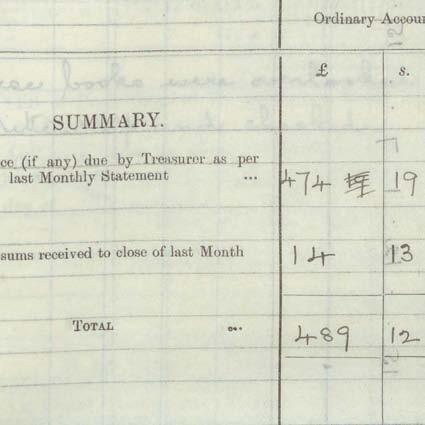 Ordinary Accoun
£ s.
SUMMARY.
ce (if any) due by Treasurer as per
last Monthly Statement ... 474 19
sums received to close of last Month 14 13
TOTAL ... 489 12